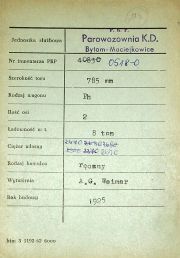 P.K.P.
Jednostka służbowa Parowozownia K.D.
Bytom-Maciejkowice
Nr inwentarza PKP 0518-0
Szerokość toru 785 mm
Rodzaj wagonu Ph
Ilość osi 2
Ładowność w t 8 ton
Ciężar własny
Rodzaj hamulca ręczny
Wytwórnia A.G. Weimar
Rok budowy 1925